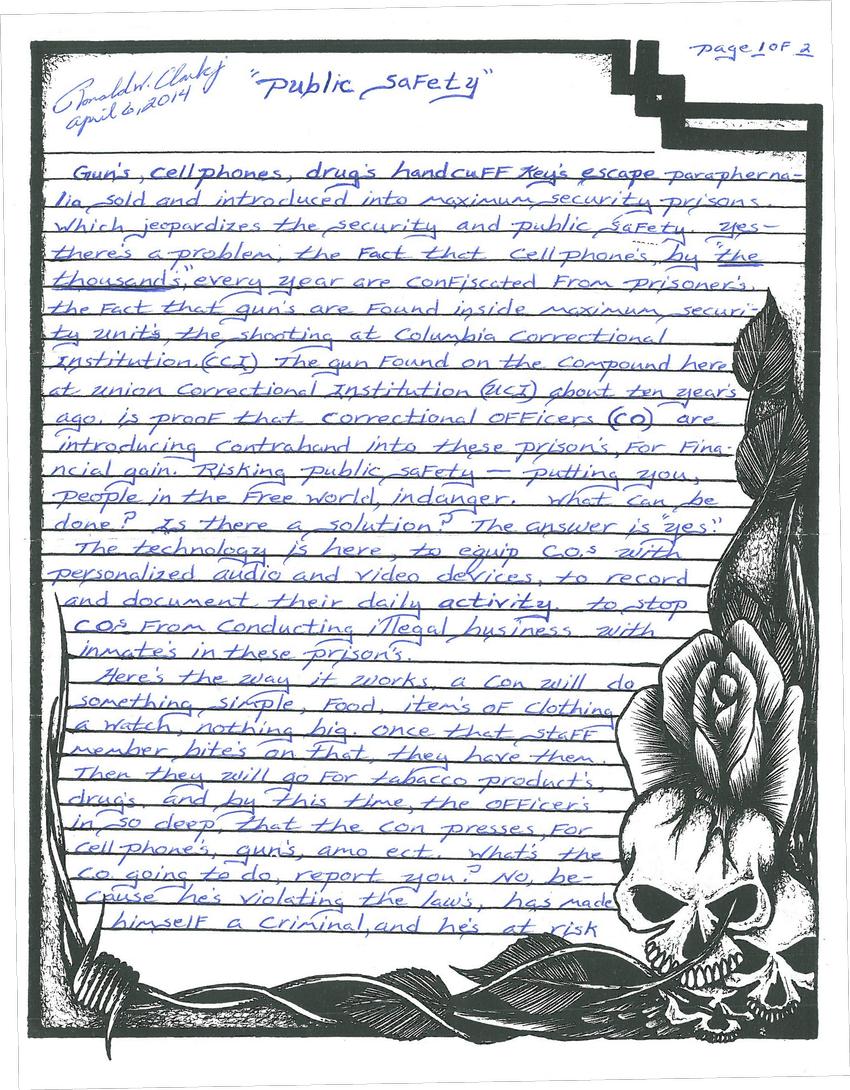 page 1 OF 2
Ronald W. Clark jr
april 6, 2014
"Public Safety"
Gun's, cell phones, drug's handcuff Key's escape parapherna-
lia sold and introduced into maximum security prisons.
Which jeopardizes the security and public safety. yes-
there's a problem, the fact that cell phone's, by "the
thousand's," every year are confiscated from prisoner's.
the fact that gun's are found inside maximum securi-
ty unit's, the shooting at Columbia Correctional
Institution. (CCI) The gun found on the compound here
at union Correctional Institution (UCI) about ten year's
ago. is proof that correctional officers (CO) are
introducing contraband into these prison's, for fina-
ncial gain. Risking public safety — putting you,
people in the free world, indanger. What can be
done? Is there a solution? The answer is "yes".
The technology is here, to equip C.O.s with
personalized audio and video devices, to record
and document their daily activity. to stop
C.O.s from conducting illegal business with
inmate's in these prison's.
Here's the way it works, a con will do
something simple, food, item's of clothing
a watch, nothing big. once that staff
member bite's on that, they have them.
Then they will go for tabacco product's,
drug's. and by this time, the officer's
in so deep, that the con presses, for
cell phone's, gun's, amo ect. What's the
C.O. going to do, report you? No, be-
cause he's violating the law's, has made
himself a criminal, and he's at risk